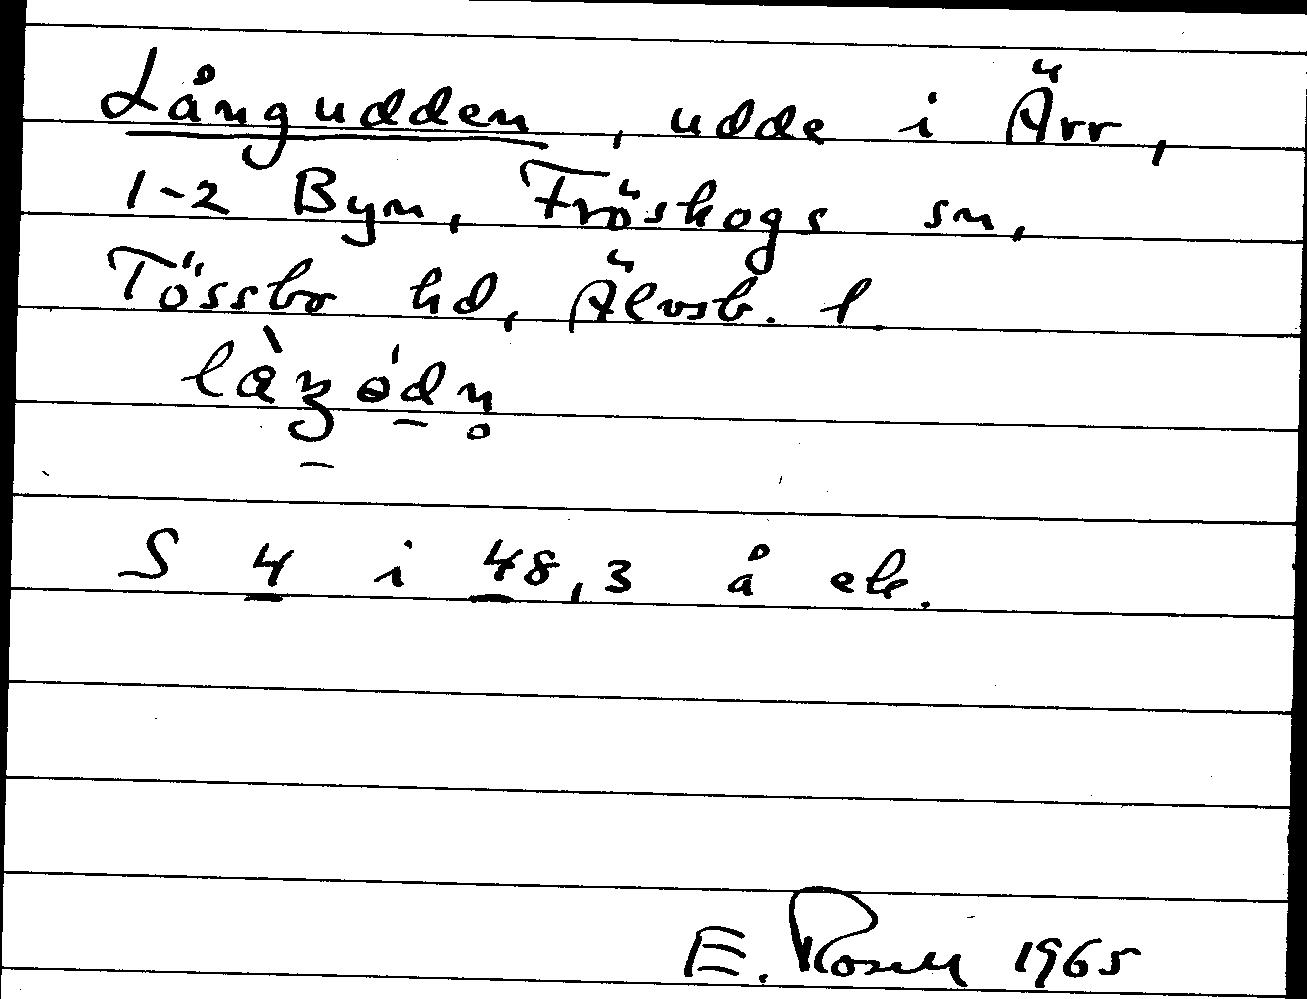 Långudden, udde i Ärr,
1-2 Byn, Fröskogs sn,
Tössbo hd, Älvsb. l.
S 4 i 48,3 å ek.
E. Rosell 1965